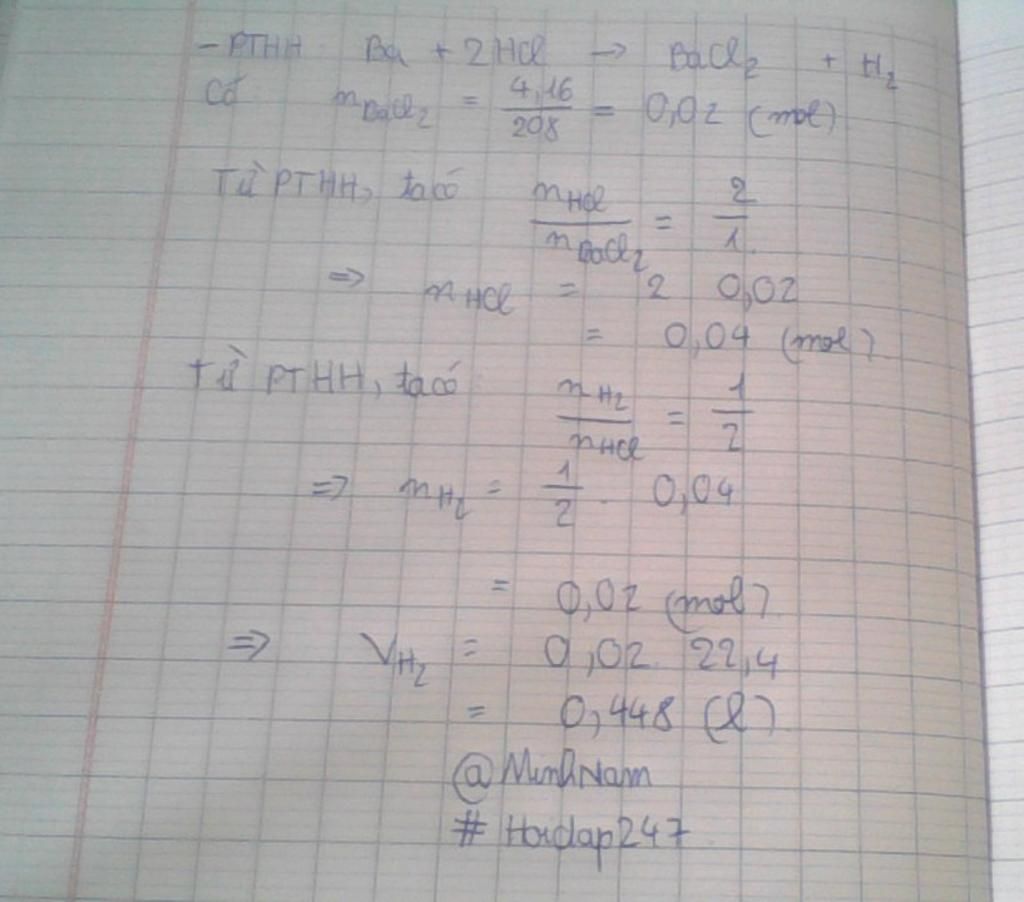 - PTHH Ba + 2HCl → BaCl₂ + H₂
Có n BaCl₂ = 4,16/208 = 0,02 (mol)
Từ PTHH, ta có n HCl / n BaCl₂ = 2/1
=> n HCl = 2 0,02
= 0,04 (mol)
Từ PTHH, ta có n H₂ / n HCl = 1/2
=> n H₂ = 1/2 . 0,04
= 0,02 (mol)
=> V H₂ = 0,02 . 22,4
= 0,448 (l)
@MinhNam
# Hoidap247